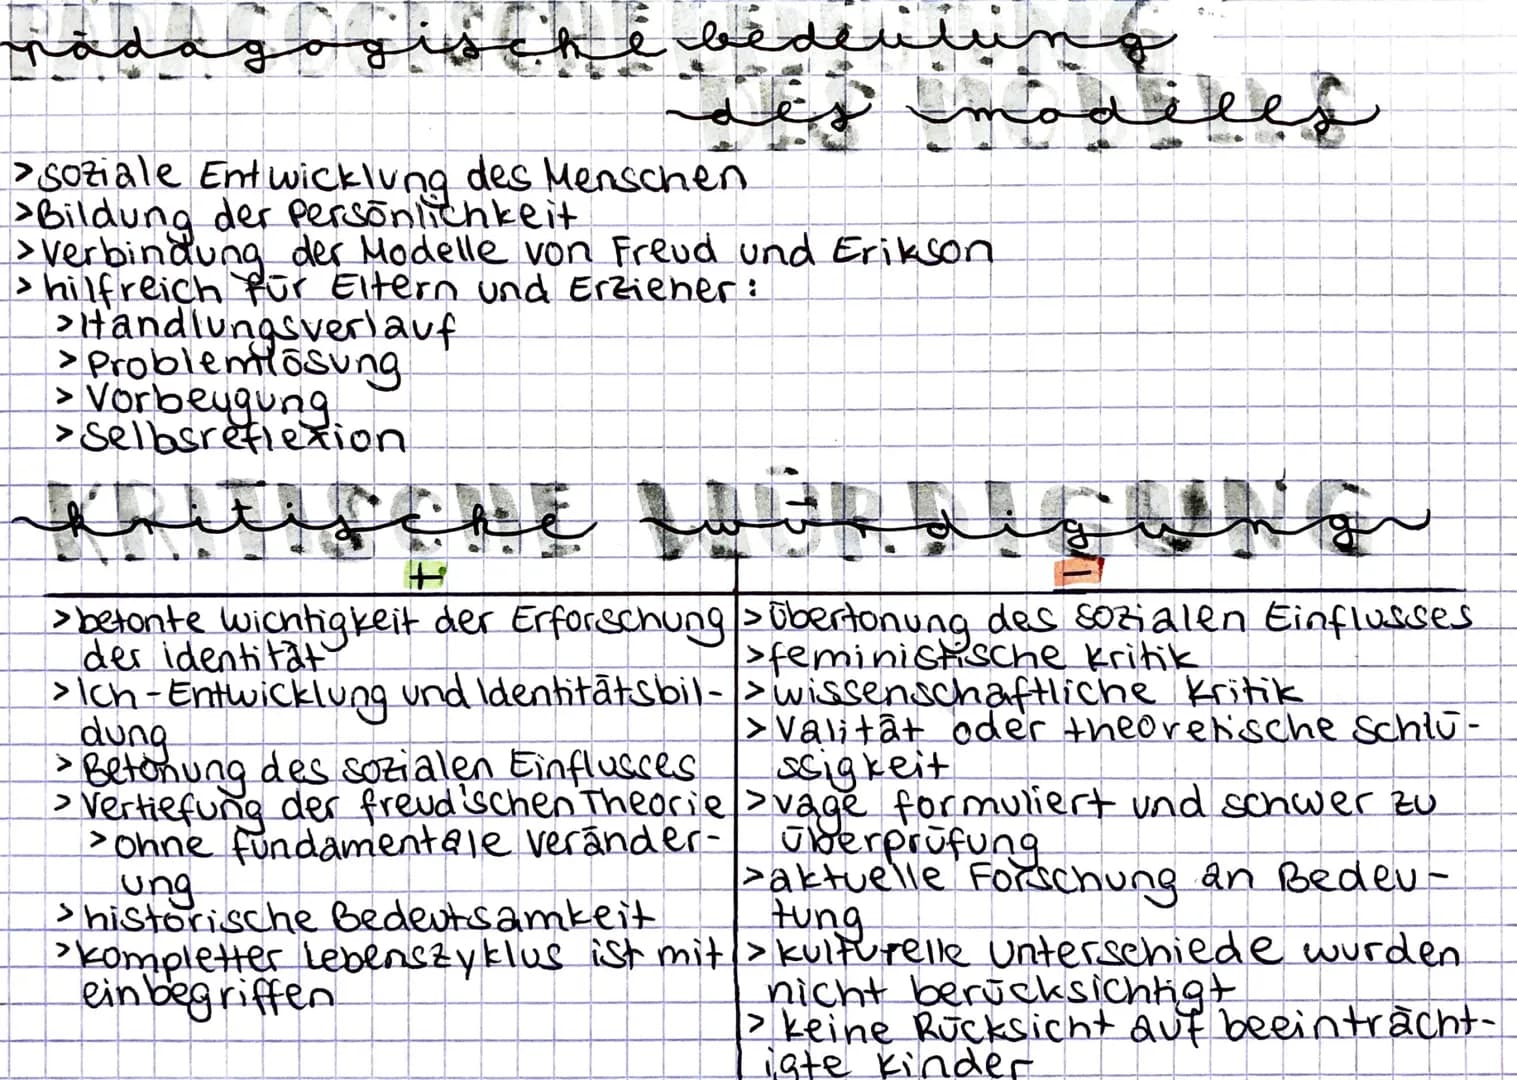 pädagogische bedeutung
des modelles
> soziale Entwicklung des Menschen
> Bildung der Persönlichkeit
> Verbindung der Modelle von Freud und Erikson
> hilfreich für Eltern und Erzieher:
> Handlungsverlauf
> Problemlösung
> Vorbeugung
> Selbsreflexion
kritische würdigung
+
> betonte wichtigkeit der Erforschung
der identität
> Ich-Entwicklung und Identitätsbil-
dung
> Betonung des sozialen Einflusses
> Vertiefung der freud'schen Theorie
> ohne fundamentale veränder-
ung
> historische Bedeutsamkeit
> kompletter Lebenszyklus ist mit
einbegriffen
-
> übertonung des sozialen Einflusses
> feministische kritik
> wissenschaftliche kritik
> Valität oder theoretische Schlü-
ssigkeit
> vage formuliert und schwer zu
überprüfung
> aktuelle Forschung an Bedeu-
tung
> kulturelle unterschiede wurden
nicht berücksichtigt
> keine Rücksicht auf beeinträcht-
igte kinder